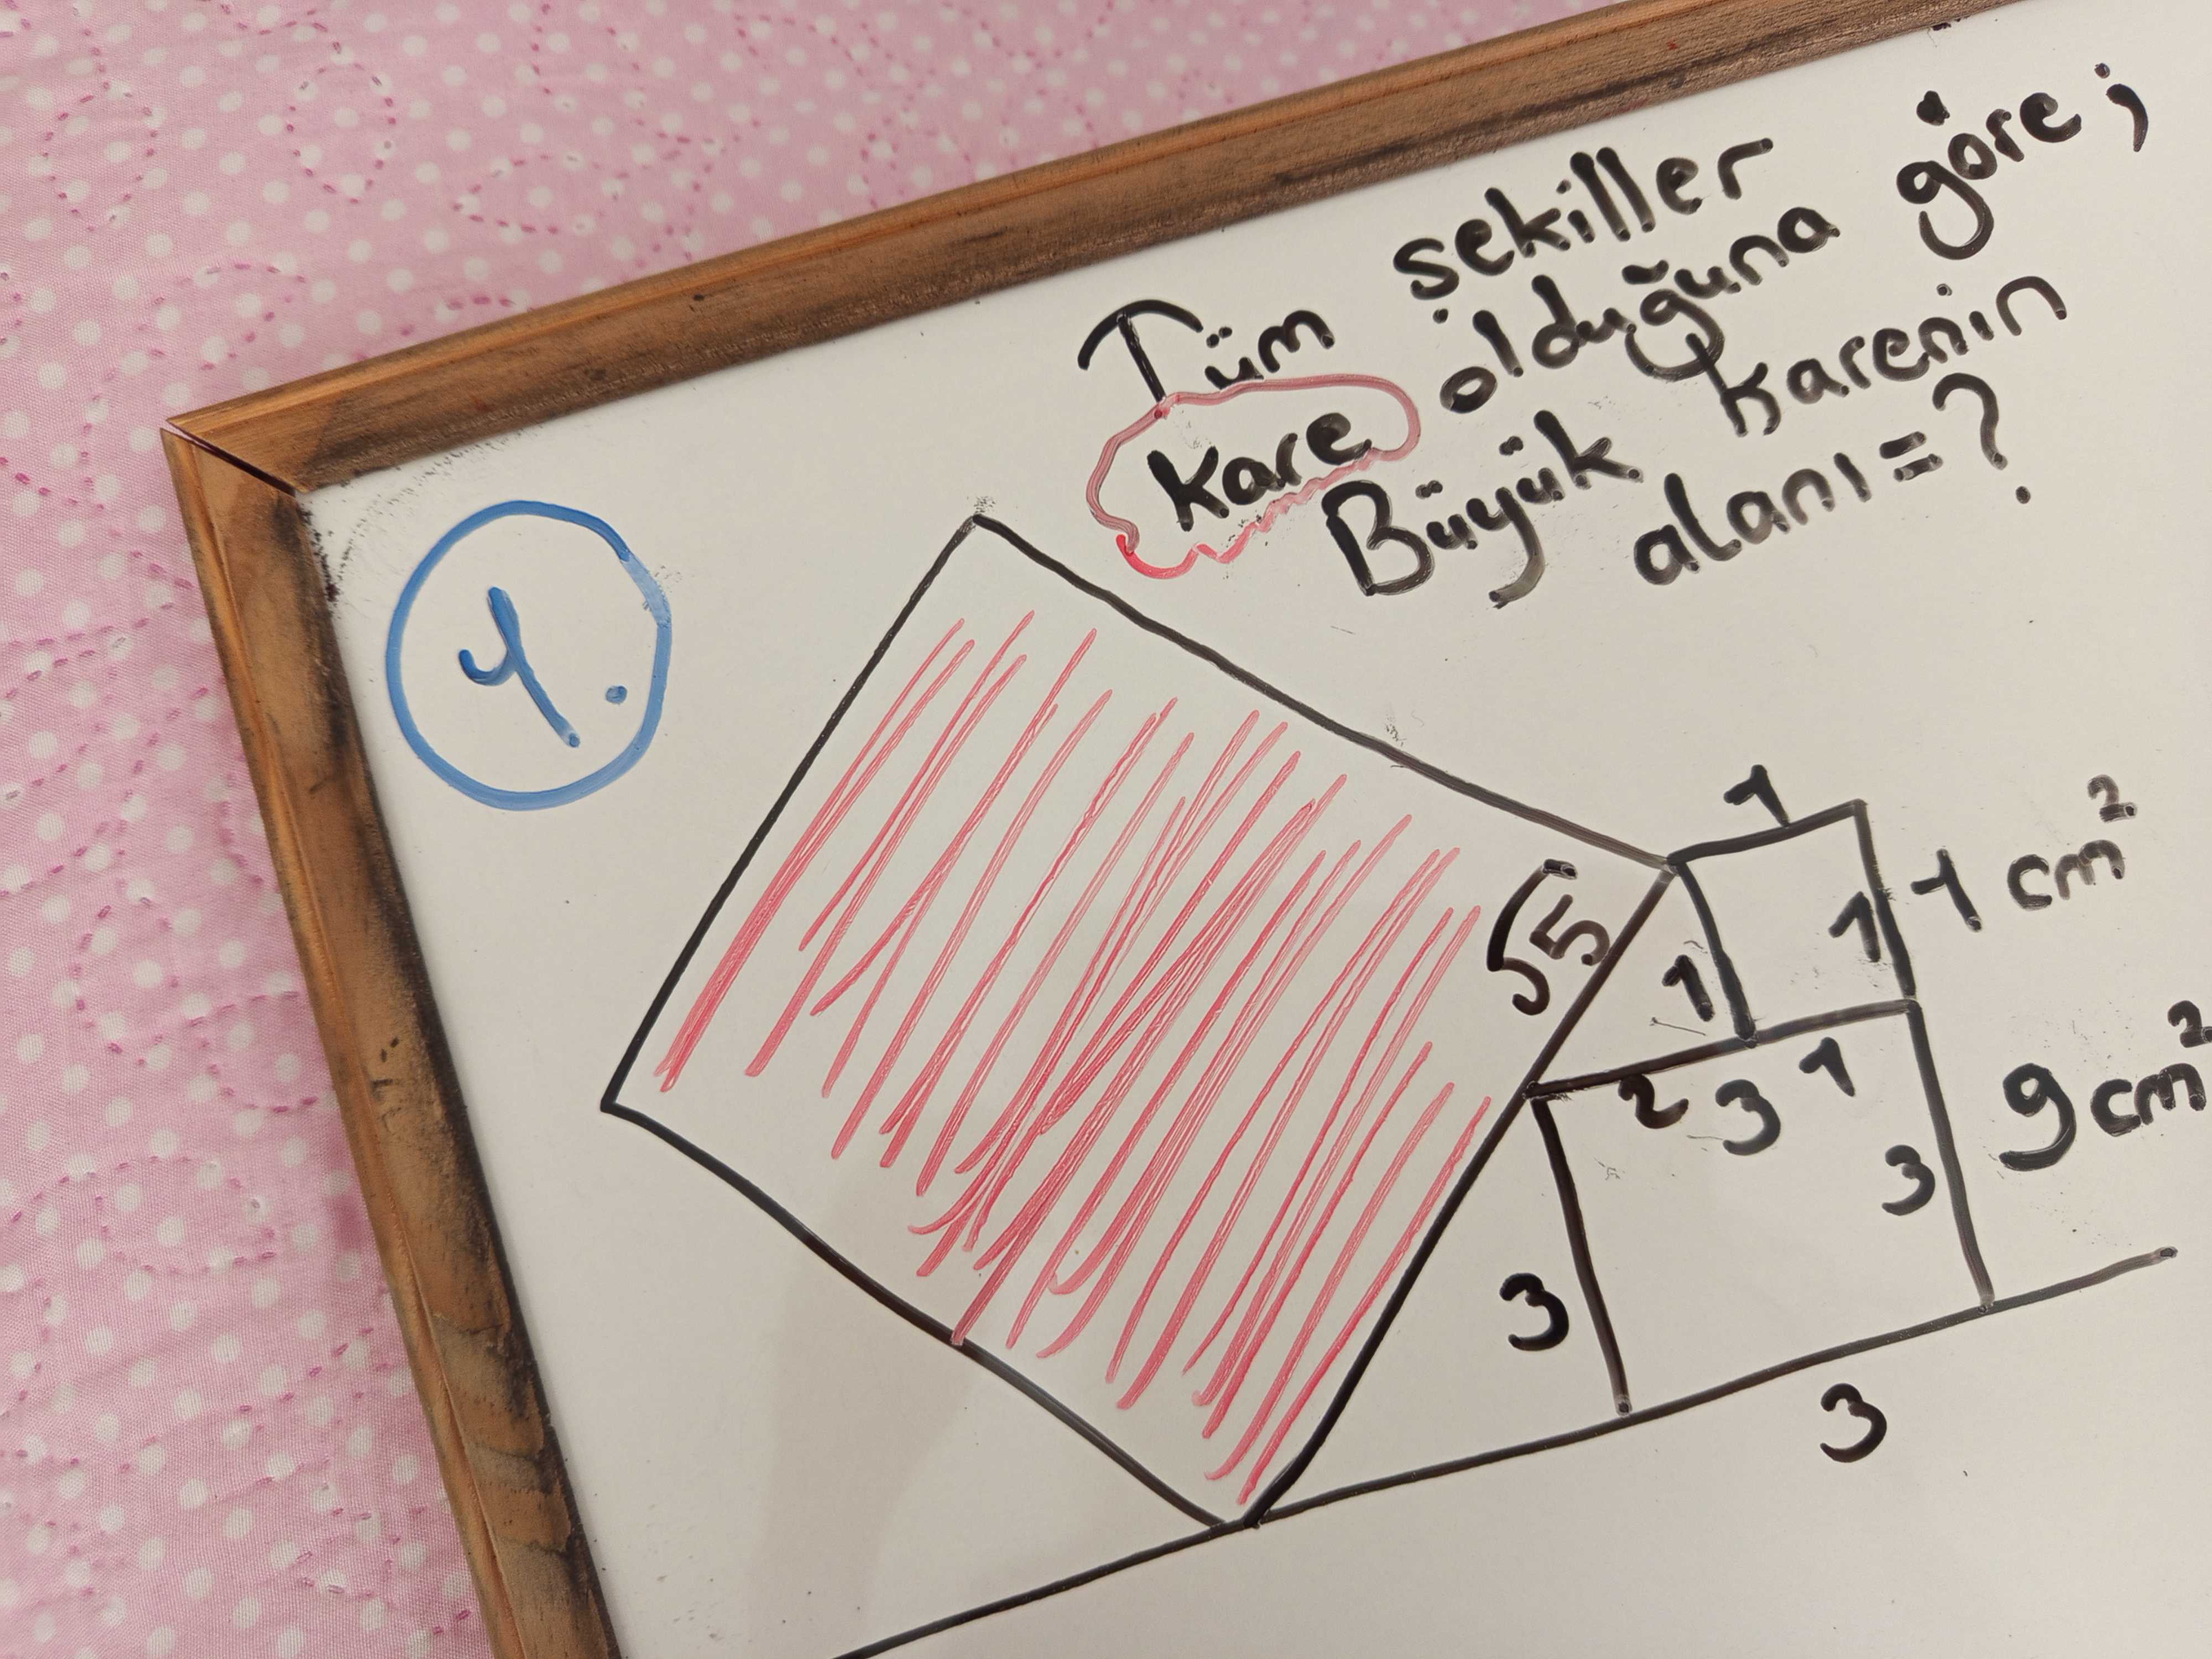 Tüm şekiller
kare olduğuna göre;
Büyük karenin
alanı = ?
4.
1
1 cm²
1
1
√5
2 3 1
9 cm²
3
3
3